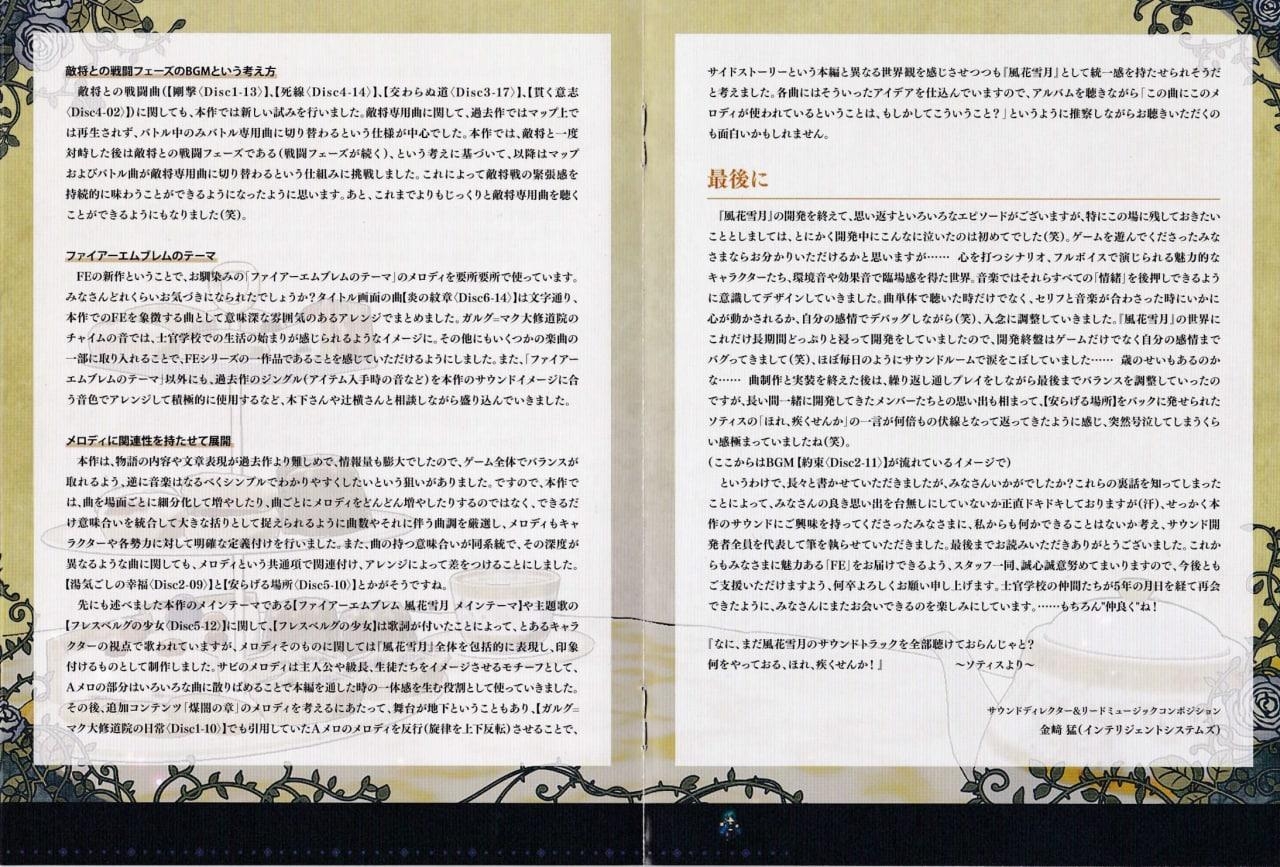 敵将との戦闘フェーズのBGMという考え方
敵将との戦闘曲(【剛撃〈Disc1-13〉】、【死線〈Disc4-14〉】、【交わらぬ道〈Disc3-17〉】、【貫く意志
〈Disc4-02〉】)に関しても、本作では新しい試みを行いました。敵将専用曲に関して、過去作ではマップ上で
は再生されず、バトル中のみバトル専用曲に切り替わるという仕様が中心でした。本作では、敵将と一度
対峙した後は敵将との戦闘フェーズである(戦闘フェーズが続く)、という考えに基づいて、以降はマップ
およびバトル曲が敵将専用曲に切り替わるという仕組みに挑戦しました。これによって敵将戦の緊張感を
持続的に味わうことができるようになったように思います。あと、これまでよりもじっくりと敵将専用曲を聴く
ことができるようにもなりました(笑)。
ファイアーエムブレムのテーマ
FEの新作ということで、お馴染みの「ファイアーエムブレムのテーマ」のメロディを要所要所で使っています。
みなさんどれくらいお気づきになられたでしょうか?タイトル画面の曲【炎の紋章〈Disc6-14〉】は文字通り、
本作でのFEを象徴する曲として意味深な雰囲気のあるアレンジでまとめました。ガルグ=マク大修道院の
チャイムの音では、士官学校での生活の始まりが感じられるようなイメージに。その他にもいくつかの楽曲の
一部に取り入れることで、FEシリーズの一作品であることを感じていただけるようにしました。また、「ファイアー
エムブレムのテーマ」以外にも、過去作のジングル(アイテム入手時の音など)を本作のサウンドイメージに合
う音色でアレンジして積極的に使用するなど、木下さんや辻横さんと相談しながら盛り込んでいきました。
メロディに関連性を持たせて展開
本作は、物語の内容や文章表現が過去作より難しめで、情報量も膨大でしたので、ゲーム全体でバランスが
取れるよう、逆に音楽はなるべくシンプルでわかりやすくしたいという狙いがありました。ですので、本作で
は、曲を場面ごとに細分化して増やしたり、曲ごとにメロディをどんどん増やしたりするのではなく、できるだ
け意味合いを統合して大きな括りとして捉えられるように曲数やそれに伴う曲調を厳選し、メロディもキャ
ラクターや各勢力に対して明確な定義付けを行いました。また、曲の持つ意味合いが同系統で、その深度が
異なるような曲に関しても、メロディという共通項で関連付け、アレンジによって差をつけることにしました。
【湯気ごしの幸福〈Disc2-09〉】と【安らげる場所〈Disc5-10〉】とかがそうですね。
先にも述べました本作のメインテーマである【ファイアーエムブレム 風花雪月 メインテーマ】や主題歌の
【フレスベルグの少女〈Disc5-12〉】に関して、【フレスベルグの少女】は歌詞が付いたことによって、とあるキャラ
クターの視点で歌われていますが、メロディそのものに関しては『風花雪月』全体を包括的に表現し、印象
付けるものとして制作しました。サビのメロディは主人公や級長、生徒たちをイメージさせるモチーフとして、
Aメロの部分はいろいろな曲に散りばめることで本編を通した時の一体感を生む役割として使っていきました。
その後、追加コンテンツ「煤闇の章」のメロディを考えるにあたって、舞台が地下ということもあり、【ガルグ=
マク大修道院の日常〈Disc1-10〉】でも引用していたAメロのメロディを反行(旋律を上下反転)させることで、
サイドストーリーという本編と異なる世界観を感じさせつつも『風花雪月』として統一感を持たせられそうだ
と考えました。各曲にはそういったアイデアを仕込んでいますので、アルバムを聴きながら「この曲にこのメ
ロディが使われているということは、もしかしてこういうこと?」というように推察しながらお聴きいただくの
も面白いかもしれません。
最後に
『風花雪月』の開発を終えて、思い返すといろいろなエピソードがございますが、特にこの場に残しておきたい
こととしましては、とにかく開発中にこんなに泣いたのは初めてでした(笑)。ゲームを遊んでくださったみな
さまならお分かりいただけるかと思いますが…… 心を打つシナリオ、フルボイスで演じられる魅力的な
キャラクターたち、環境音や効果音で臨場感を得た世界。音楽ではそれらすべての「情緒」を後押しできるよう
に意識してデザインしていきました。曲単体で聴いた時だけでなく、セリフと音楽が合わさった時にいかに
心が動かされるか、自分の感情でデバッグしながら(笑)、入念に調整していきました。『風花雪月』の世界に
これだけ長期間どっぷりと浸って開発をしていましたので、開発終盤はゲームだけでなく自分の感情まで
バグってきまして(笑)、ほぼ毎日のようにサウンドルームで涙をこぼしていました…… 歳のせいもあるのか
な…… 曲制作と実装を終えた後は、繰り返し通しプレイをしながら最後までバランスを調整していったの
ですが、長い間一緒に開発してきたメンバーたちとの思い出も相まって、【安らげる場所】をバックに発せられた
ソティスの「ほれ、疾くせんか」の一言が何倍もの伏線となって返ってきたように感じ、突然号泣してしまうくら
い感極まっていましたね(笑)。
(ここからはBGM【約束〈Disc2-11〉】が流れているイメージで)
というわけで、長々と書かせていただきましたが、みなさんいかがでしたか?これらの裏話を知ってしまった
ことによって、みなさんの良き思い出を台無しにしていないか正直ドキドキしておりますが(汗)、せっかく本
作のサウンドにご興味を持ってくださったみなさまに、私からも何かできることはないか考え、サウンド開
発者全員を代表して筆を執らせていただきました。最後までお読みいただきありがとうございました。これか
らもみなさまに魅力ある「FE」をお届けできるよう、スタッフ一同、誠心誠意努めてまいりますので、今後とも
ご支援いただけますよう、何卒よろしくお願い申し上げます。士官学校の仲間たちが5年の月日を経て再会
できたように、みなさんにまたお会いできるのを楽しみにしています。……もちろん"仲良く"ね!
『なに、まだ風花雪月のサウンドトラックを全部聴けておらんじゃと?
何をやっておる、ほれ、疾くせんか!』 ~ソティスより~
サウンドディレクター&リードミュージックコンポジション
金﨑 猛(インテリジェントシステムズ)